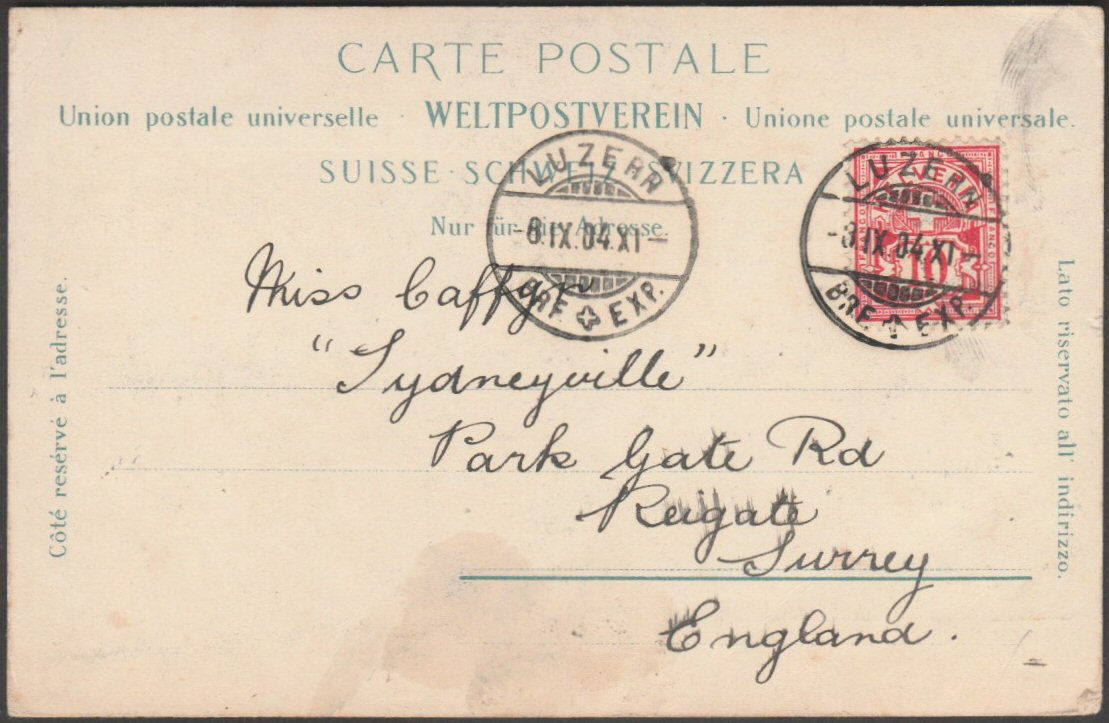 CARTE POSTALE
Union postale universelle · WELTPOSTVEREIN · Unione postale universale.
SUISSE · SCHWEIZ · SVIZZERA
Nur für die Adresse.
LUZERN
-8.IX.04.XI-
BRF. EXP.
LUZERN
-8.IX.04.XI-
BRF. EXP.
FRANCO
HELVETIA
10
Côté resérvé à l'adresse.
Miss Caffyn
"Sydneyville"
Park Gate Rd
Reigate
Surrey
England.
Lato riservato all' indirizzo.